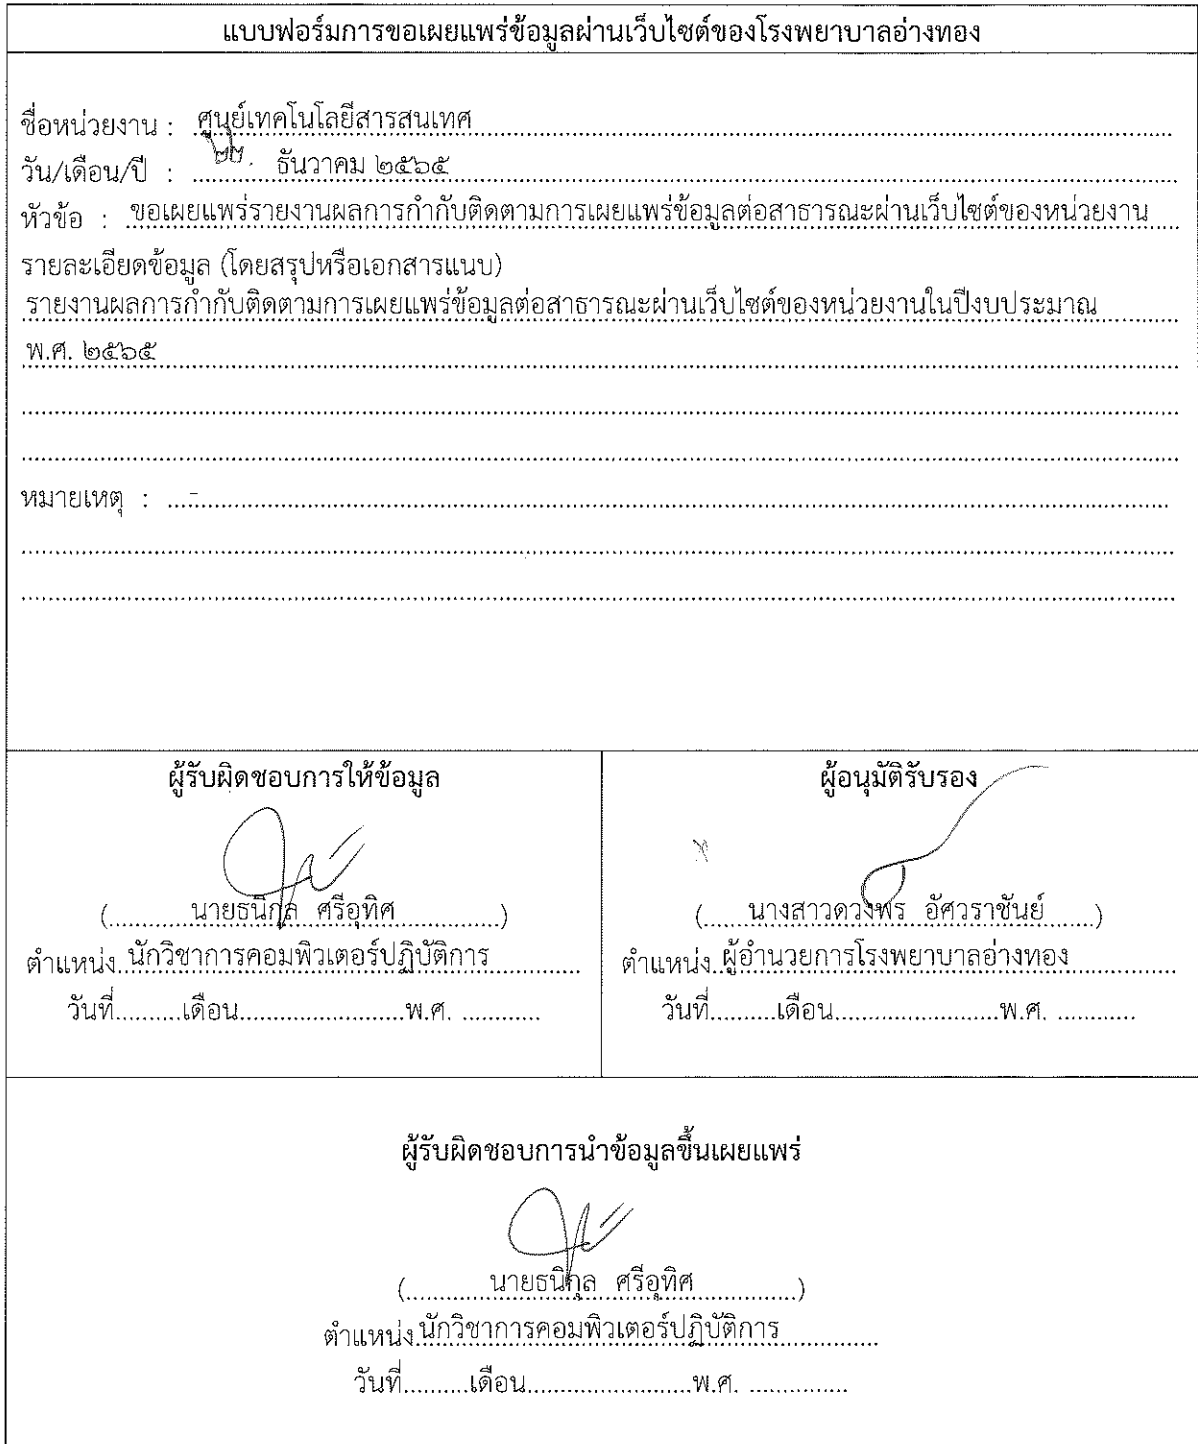 แบบฟอร์มการขอเผยแพร่ข้อมูลผ่านเว็บไซต์ของโรงพยาบาลอ่างทอง
ชื่อหน่วยงาน : ศูนย์เทคโนโลยีสารสนเทศ
วัน/เดือน/ปี : ๒๒. ธันวาคม ๒๕๖๕
หัวข้อ : ขอเผยแพร่รายงานผลการกำกับติดตามการเผยแพร่ข้อมูลต่อสาธารณะผ่านเว็บไซต์ของหน่วยงาน
รายละเอียดข้อมูล (โดยสรุปหรือเอกสารแนบ)
รายงานผลการกำกับติดตามการเผยแพร่ข้อมูลต่อสาธารณะผ่านเว็บไซต์ของหน่วยงานในปีงบประมาณ
พ.ศ. ๒๕๖๕
หมายเหตุ : -
ผู้รับผิดชอบการให้ข้อมูล
(..........นายธนิกุล ศรีอุทิศ..........)
ตำแหน่ง.นักวิชาการคอมพิวเตอร์ปฏิบัติการ
วันที่..........เดือน........................พ.ศ. ............
ผู้อนุมัติรับรอง
(......นางสาวดวงพร อัศวราชันย์......)
ตำแหน่ง.ผู้อำนวยการโรงพยาบาลอ่างทอง
วันที่..........เดือน........................พ.ศ. ............
ผู้รับผิดชอบการนำข้อมูลขึ้นเผยแพร่
(..........นายธนิกุล ศรีอุทิศ..........)
ตำแหน่ง.นักวิชาการคอมพิวเตอร์ปฏิบัติการ
วันที่..........เดือน........................พ.ศ. ...............